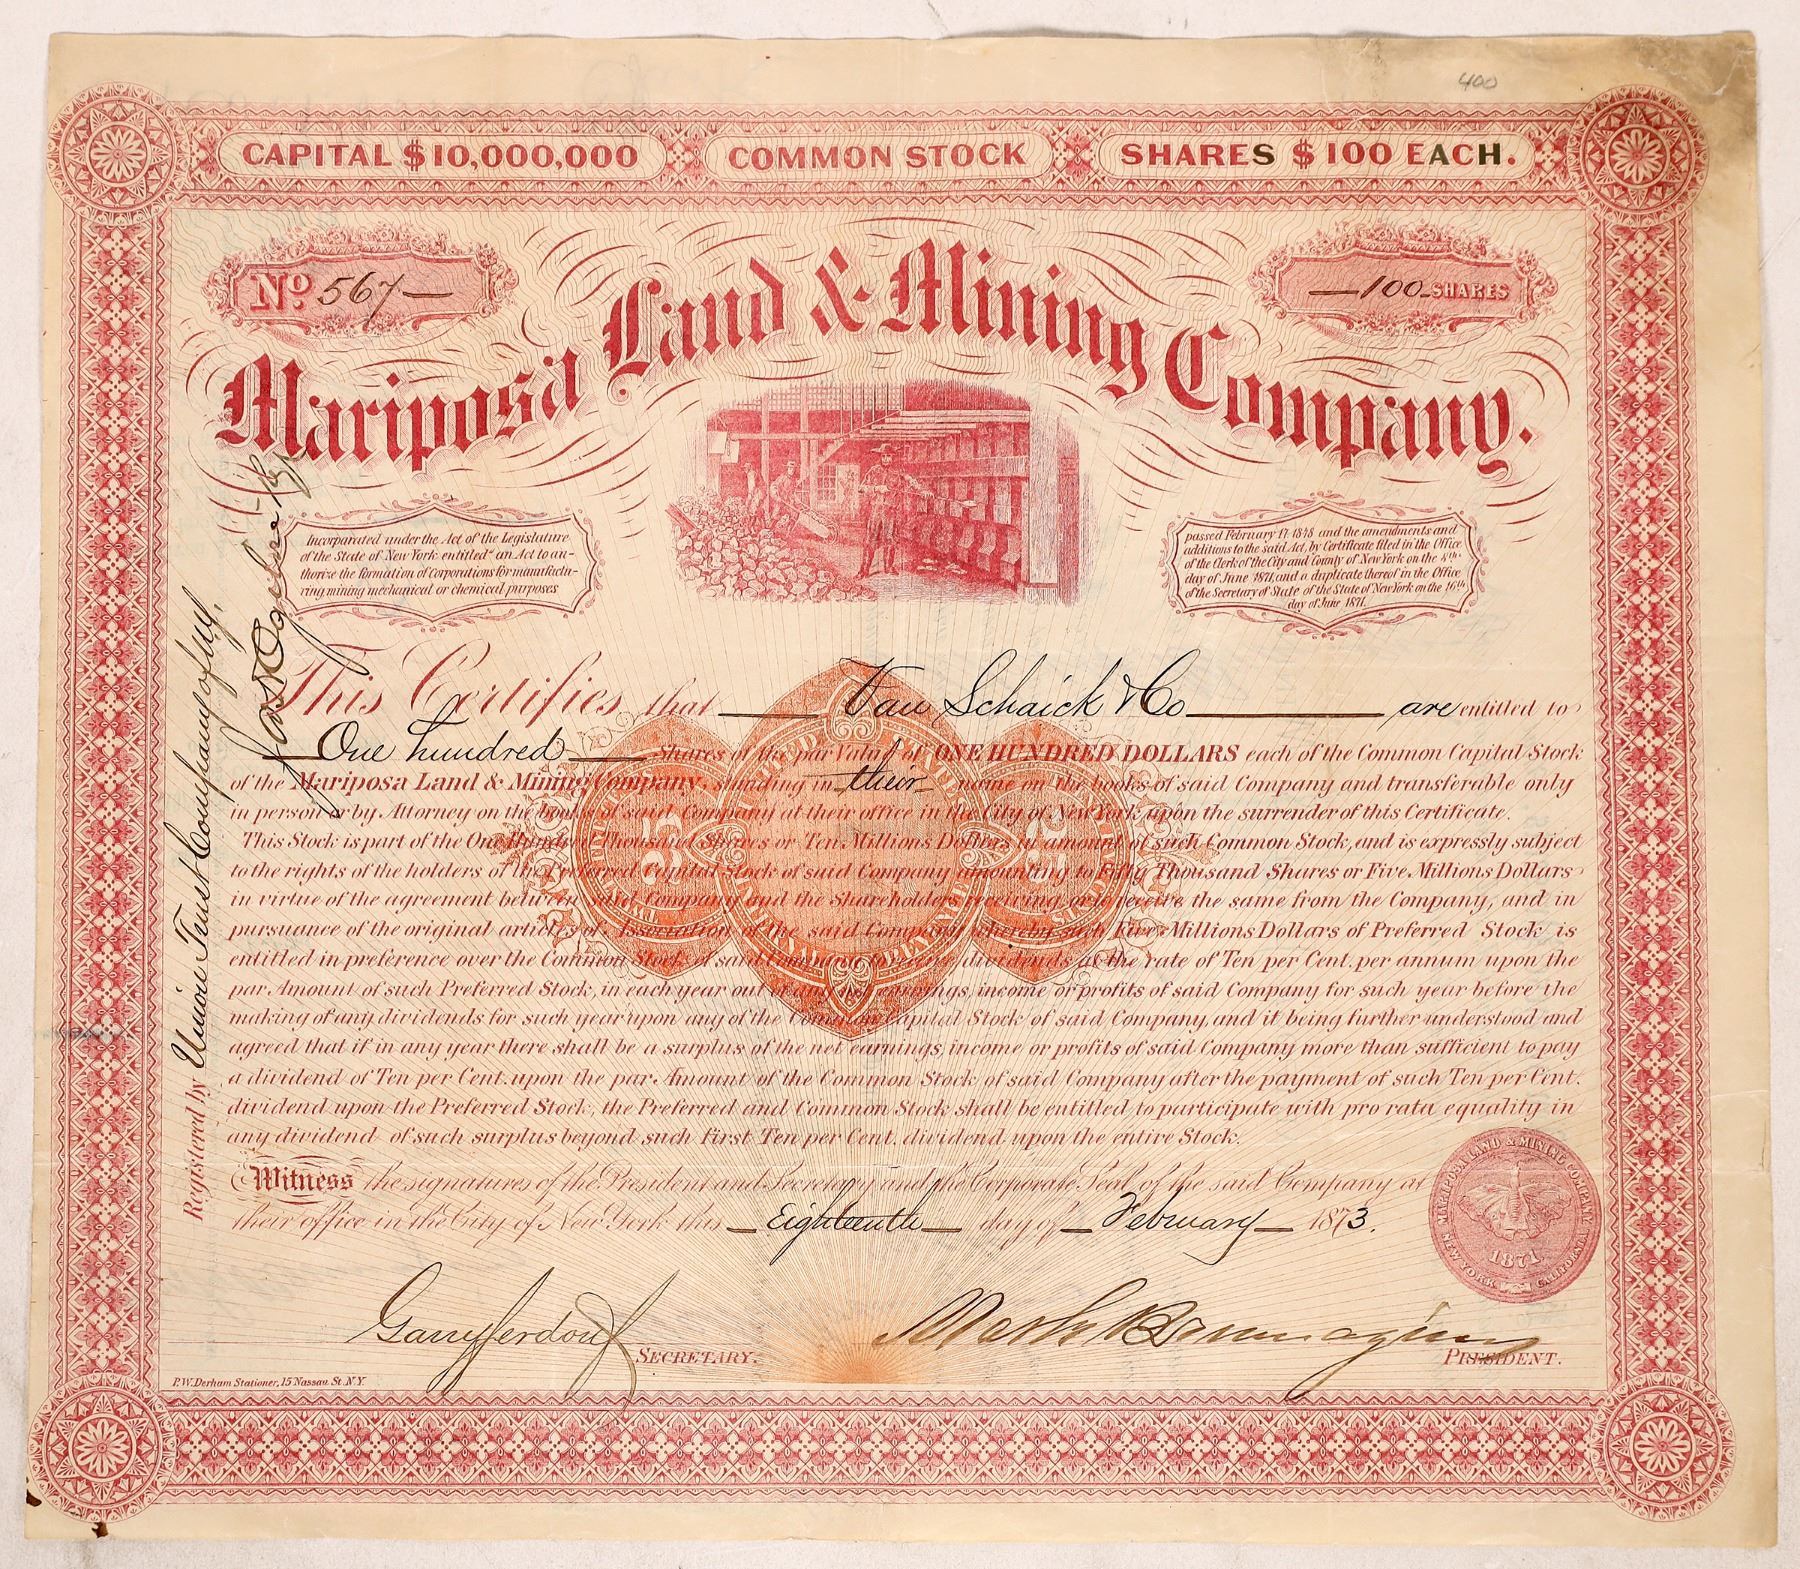 400
CAPITAL $10,000,000 COMMON STOCK SHARES $100 EACH.
No. 567
100 SHARES
Mariposa Land & Mining Company.
Incorporated under the Act of the Legislature
of the State of New York entitled "an Act to au-
thorize the formation of Corporations for manufactu-
ring mining mechanical or chemical purposes
passed February 17 1848 and the amendments and
additions to the said Act, by Certificate filed in the Office
of the Clerk of the City and County of New York on the 8th
day of June 1871, and a duplicate thereof in the Office
of the Secretary of State of the State of New York on the 16th
day of June 1871.
This Certifies that Van Schaick & Co are entitled to
One hundred Shares of the par Value of ONE HUNDRED DOLLARS each of the Common Capital Stock
of the Mariposa Land & Mining Company, standing in their name on the books of said Company and transferable only
in person or by Attorney on the books of said Company at their office in the City of New York upon the surrender of this Certificate.
This Stock is part of the One Hundred Thousand Shares or Ten Millions Dollars in amount of such Common Stock, and is expressly subject
to the rights of the holders of the Preferred Capital Stock of said Company amounting to Fifty Thousand Shares or Five Millions Dollars
in virtue of the agreement between said Company and the Shareholders receiving or to receive the same from the Company, and in
pursuance of the original articles of Association of the said Company whereby such Five Millions Dollars of Preferred Stock is
entitled in preference over the Common Stock of said Company to receive dividends at the rate of Ten per Cent. per annum upon the
par Amount of such Preferred Stock, in each year out of any net earnings, income or profits of said Company for such year before the
making of any dividends for such year upon any of the Common Capital Stock of said Company, and it being further understood and
agreed that if in any year there shall be a surplus of the net earnings, income or profits of said Company more than sufficient to pay
a dividend of Ten per Cent. upon the par Amount of the Common Stock of said Company after the payment of such Ten per Cent.
dividend upon the Preferred Stock, the Preferred and Common Stock shall be entitled to participate with pro rata equality in
any dividend of such surplus beyond such first Ten per Cent. dividend upon the entire Stock.
Witness the signatures of the President and Secretary and the Corporate Seal of the said Company at
their office in the City of New York this Eighteenth day of February 1873.
SECRETARY.
Mark Brumagim
PRESIDENT.
P.W. Derham Stationer, 15 Nassau St. N.Y.
Registered by Union Trust Company of N.Y.
MARIPOSA LAND & MINING COMPANY
NEW YORK CALIFORNIA
1871
25
25